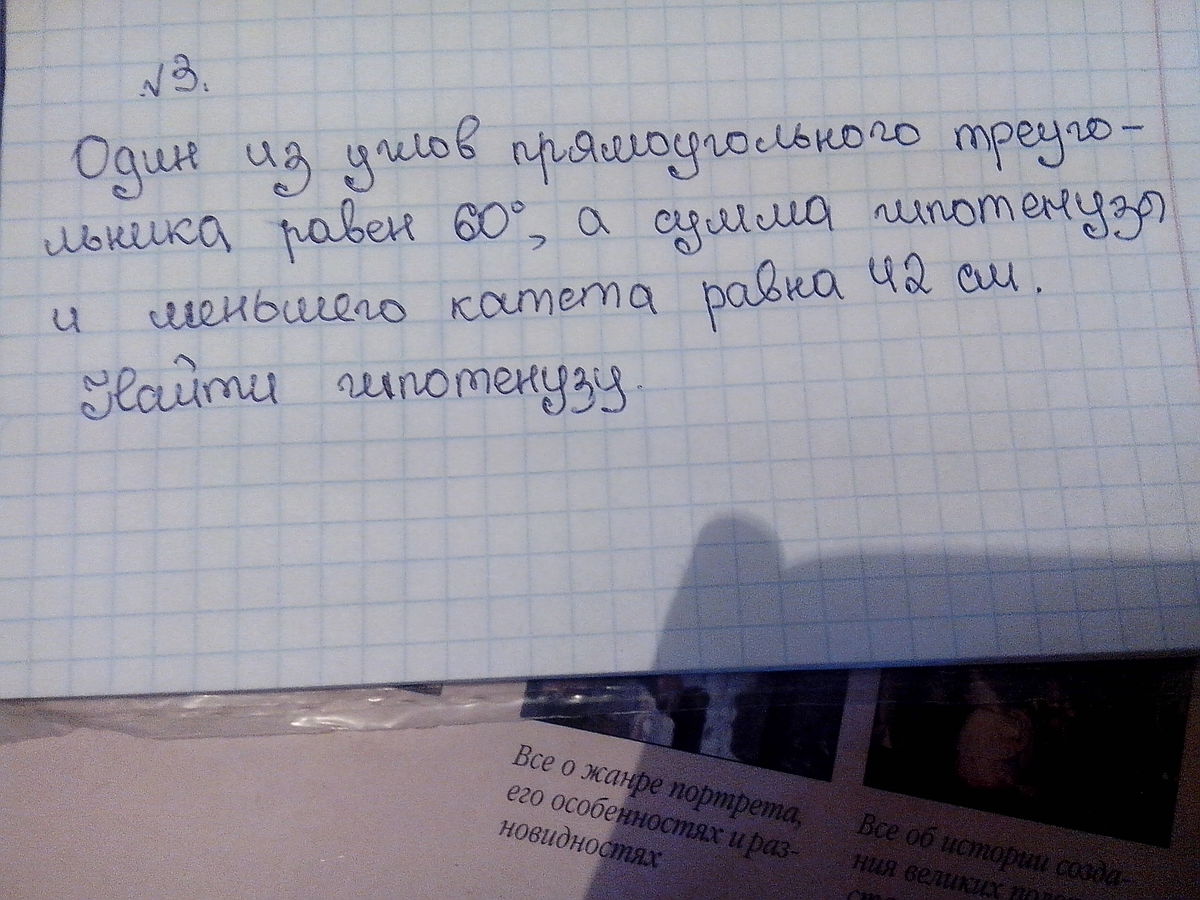 №3.
Один из углов прямоугольного треуго-
льника равен 60°, а сумма гипотенузы
и меньшего катета равна 42 см.
Найти гипотенузу.
Все о жанре портрета,
его особенностях и раз-
новидностях
Все об истории созда-
ния великих